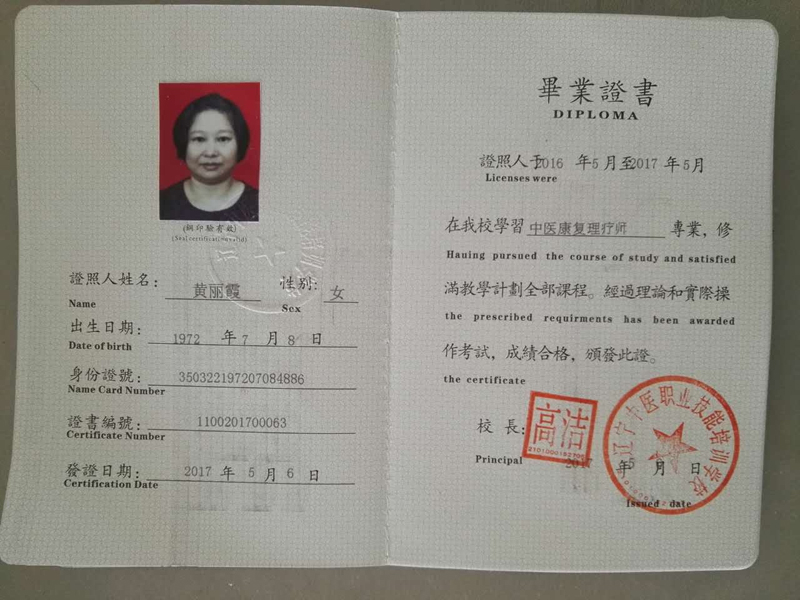 (鋼印驗有效)
(Seal certification valid)
證照人姓名： 黄丽霞 性别： 女
Name Sex
出生日期： 1972 年 7 月 8 日
Date of birth
身份證號： 350322197207084886
Name Card Number
證書編號： 1100201700063
Certificate Number
發證日期： 2017 年 5 月 6 日
Certification Date
畢業證書
DIPLOMA
證照人于2016 年5月至2017年5月
Licenses were
在我校學習 中医康复理疗师 專業，修
Hauing pursued the course of study and satisfied
滿教學計劃全部課程。經過理論和實際操
the prescribed requirments has been awarded
作考試，成績合格，頒發此證。
the certificate
校長： 高洁
Principal
2017 年 5 月 日
Issued date
辽宁中医职业技能培训学校